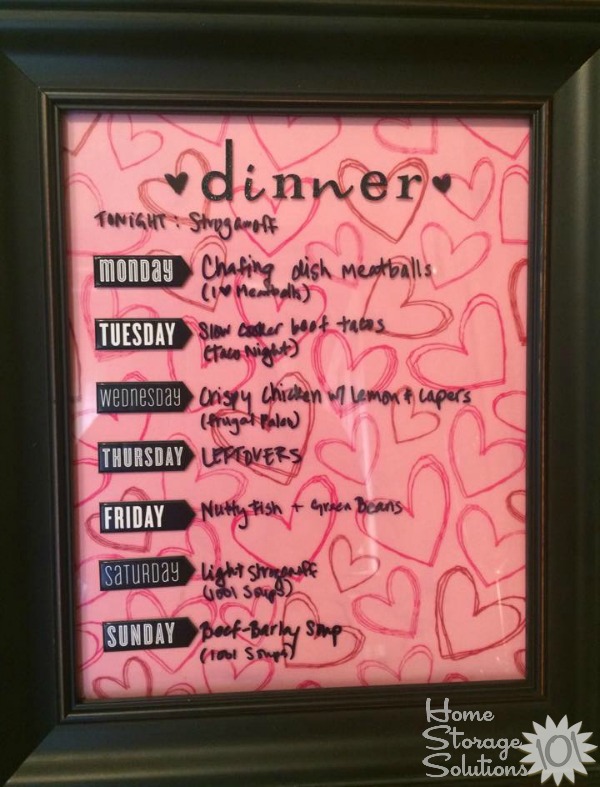 dinner
TONIGHT: Stroganoff
MONDAY Chafing dish Meatballs
(I ♥ Meatballs)
TUESDAY Slow cooker beef tacos
(Taco Night)
Wednesday Crispy Chicken w/ Lemon & Capers
(frugal Paleo)
THURSDAY LEFTOVERS
FRIDAY Nutty Fish + Green Beans
SATURDAY Light Stroganoff
(1001 Soups)
SUNDAY Beef-Barley Soup
(1001 Soups)
Home
Storage
Solutions 101